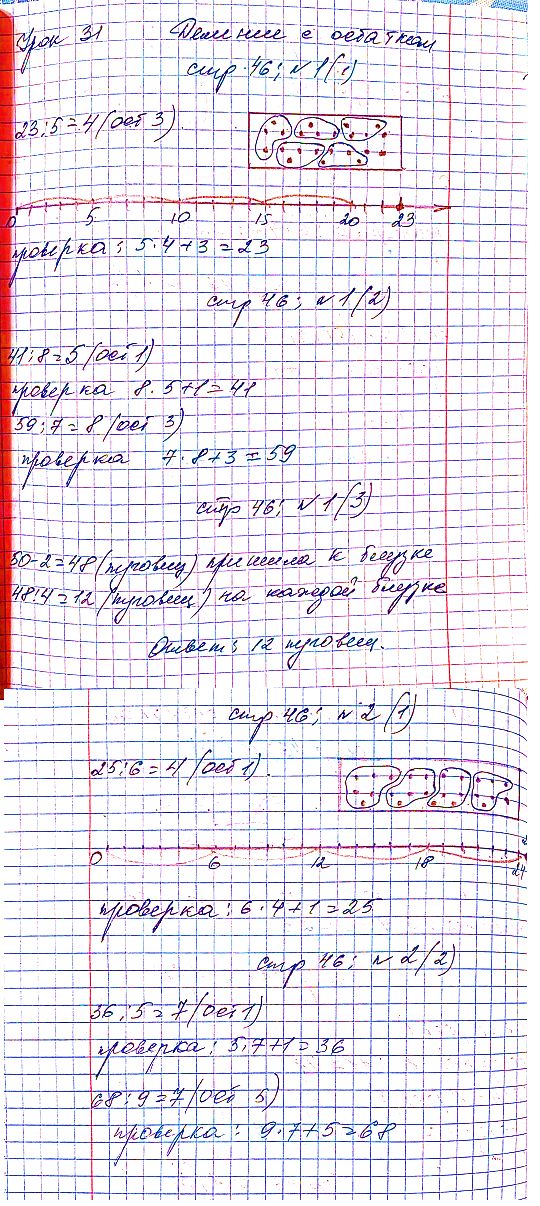 Урок 31 Деление с остатком
стр 46; №1(1)
23:5=4(ост 3)
0 5 10 15 20 23
проверка: 5·4+3=23
стр 46; №1(2)
41:8=5(ост1)
проверка 8·5+1=41
59:7=8(ост 3)
проверка 7·8+3=59
стр 46; №1(3)
50-2=48(пуговиц) пришила к блузке
48:4=12(пуговиц) на каждой блузке
Ответ: 12 пуговиц.
стр 46; №2(1)
25:6=4(ост1).
0 6 12 18 24
проверка: 6·4+1=25
стр 46; №2(2)
36:5=7(ост1)
проверка: 5·7+1=36
68:9=7(ост 5)
проверка: 9·7+5=68